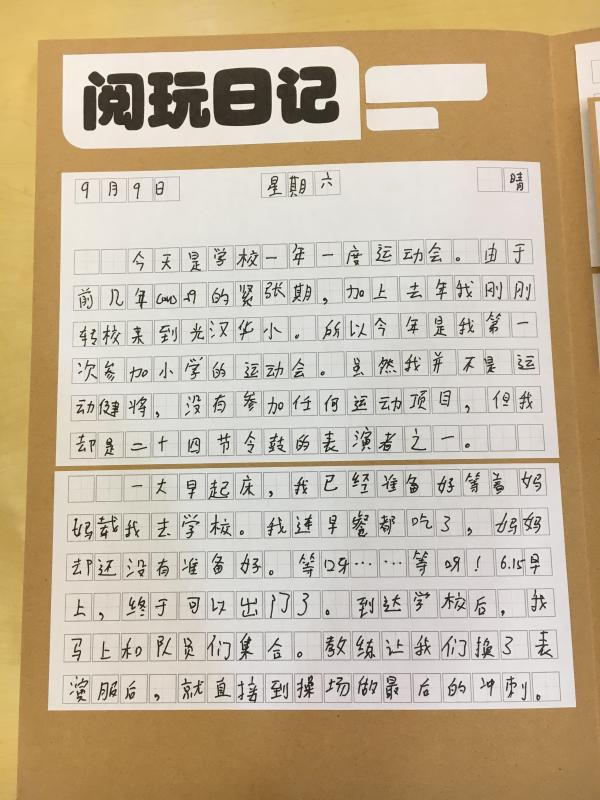 阅玩日记
9月9日 星期六 晴
今天是学校一年一度运动会。由于
前几年covid19的紧张期，加上去年我刚刚
转校来到光汉华小。所以今年是我第一
次参加小学的运动会。虽然我并不是运
动健将，没有参加任何运动项目，但我
却是二十四节令鼓的表演者之一。
一大早起床，我已经准备好等着妈
妈载我去学校。我连早餐都吃了，妈妈
却还没有准备好。等呀……等呀！6.15早
上，终于可以出门了。到达学校后，我
马上和队员们集合。教练让我们换了表
演服后，就直接到操场做最后的冲刺。